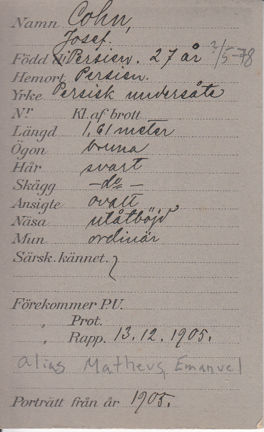 Namn Cohn,
Josef.
Född i Persien. 27 år 2/5-78
Hemort Persien.
Yrke Persisk undersåte
Nr Kl. af brott
Längd 1,61 meter
Ögon bruna
Hår svart
Skägg —d:o—
Ansigte ovalt
Näsa utåtböjd
Mun ordinär
Särsk. kännet.
Förekommer P.U.
" Prot.
" Rapp. 13.12.1905.
alias Matheus, Emanuel
Porträtt från år 1905.